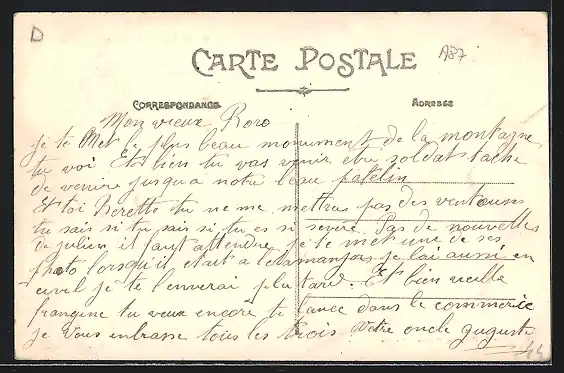 D
A87
CARTE POSTALE
CORRESPONDANCE
ADRESSE
Mon vieux Roro
je te Met le plus beau monument de la montagne
tu voi Et bien tu vas venir etre soldat tache
de venire jusqu a notre beau patelin
Et toi Berette tu ne me mettras pas des ventouses
tu sais si tu sais si tu es si severe. Pas de nouvelles
de julien il faut attendre je te met une de ses
photo lorsqu'il etait a je lai aussi en
civil je te l'enverai plu tard. Et bien vieille
frangine tu veux encore te lancé dans le commerce
je Vous embrasse tous les trois Votre oncle guguste